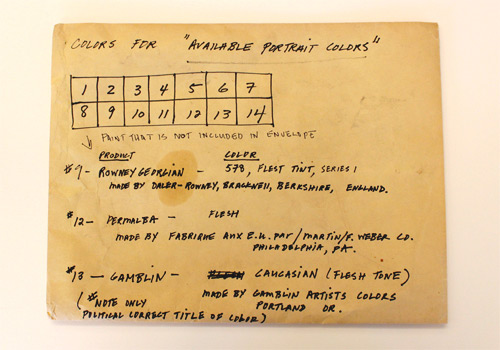 COLORS FOR "AVAILABLE PORTRAIT COLORS"
1 2 3 4 5 6 7
8 9 10 11 12 13 14
PAINT THAT IS NOT INCLUDED IN ENVELOPE
PRODUCT COLOR
#9 - ROWNEY GEORGIAN - 578, FLEST TINT, SERIES 1
MADE BY DALER-ROWNEY, BRACKNELL, BERKSHIRE, ENGLAND.
#12 - PERMALBA - FLESH
MADE BY FABRIQUE AUX E.U. PAR / MARTIN/F. WEBER CO.
PHILADELPHIA, PA.
#13 - GAMBLIN - CAUCASIAN (FLESH TONE)
(#NOTE ONLY MADE BY GAMBLIN ARTISTS COLORS
POLITICAL CORRECT TITLE OF COLOR) PORTLAND OR.